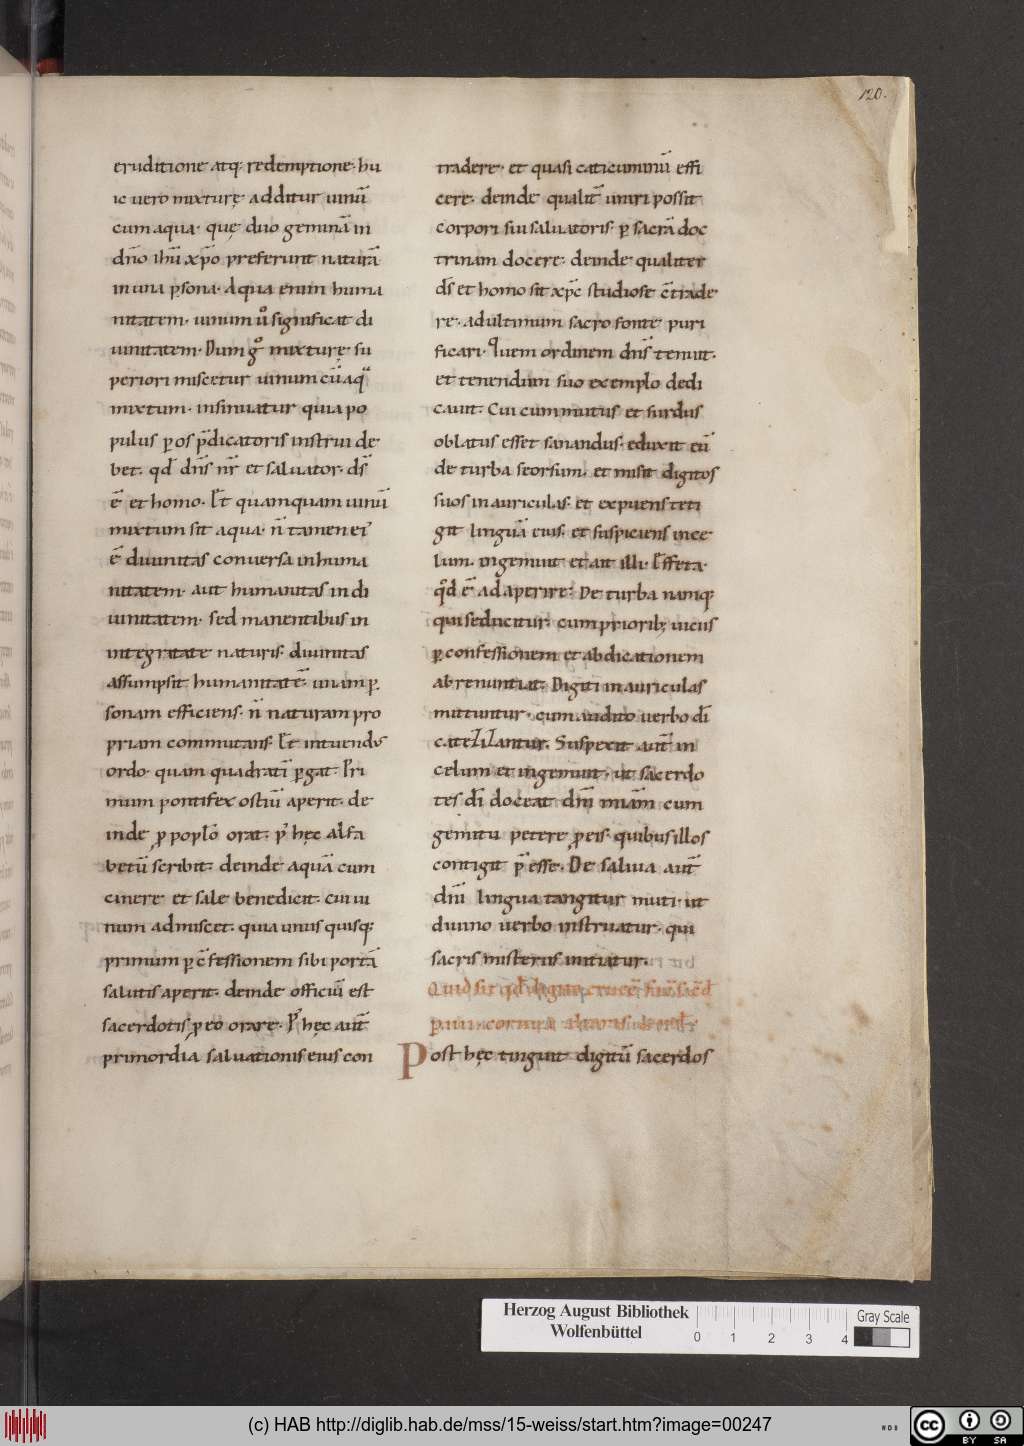 120.
eruditione atq; redemptione· hu
ic uero mixturę additur uinū
cum aqua· quę duo geminā in
dn̄o ihū xp̄o preferunt naturā·
in una p̱sona· Aqua enim huma
nitatem· uinum uͦ significat di
uinitatem· Dum gͦ mixturę su
periori miscetur uinum cū aqͣ
mixtum· insinuatur quia po
pulus p̱ os p̄dicatoris instrui de
bet· qđ dn̄s nr̄ et saluator· ds̄
ē et homo· Et quamquam uinū
mixtum sit aqua· n̄ tamen ei᷒
ē diuinitas conuersa in huma
nitatem· aut humanitas in di
uinitatem· sed manentibus in
integritate naturis· diuinitas
assumpsit humanitatē· unam p̱
sonam efficiens· n̄ naturam pro
priam commutans· Et intuendus
ordo· quam quadratī p̱gat· Pri
mum pontifex ostiū aperit· de
inde ꝓ poplo᷒ orat· p᷒ hęc alfa
betū scribit· deinde aquā cum
cinere et sale benedicit· cui ui
num admiscet· quia unus quisq;
primum p̱ c̄fessionem sibi portā
salutis aperit· deinde officiū est
sacerdotis ꝓ eo orare· P᷒ hęc aut̄
primordia saluationis eius con
tradere· et quasi caticuminū effi
cere· deinde qualit̄ uniri possit
corpori sui saluatoris· p̱ sacrā doc
trinam docere· deinde qualiter
ds̄ et homo sit xp̄c studiose c̄trade
re· ad ultimum sacro fonte puri
ficari· Quem ordinem dn̄s tenuit·
et tenendum suo exemplo dedi
cauit· Cui cum mutus et surdus
oblatus esset sanandus· eduxit eū
de turba seorsum· et misit digitos
suos in auriculas· et expuens teti
git linguā eius· et suspiciens in ce
lum· ingemuit et ait illi· Effeta·
qđ ē adaperire· De turba namq;
qui seducitur· cum priorib; uicus
p̱ confessionem et abdicationem
abrenuntiat· Digiti in auriculas
mittuntur· cum audito uerbo dī
catezizantur· Suspexit aut̄ in
celum et ingemuit· ut sacerdo
tes dī doceat dn̄i miām cum
gemitu petere ꝓ eis· quibus illos
contigit p̄esse· De saliua aut̄
dn̄i lingua tangitur muti· ut
diuino uerbo instruatur· qui
sacris misteriis initiatur·
Quid sit qđ
Post hęc tinguit digitū sacerdos
Herzog August Bibliothek
Wolfenbüttel
0 1 2 3 4
Gray Scale
(c) HAB http://diglib.hab.de/mss/15-weiss/start.htm?image=00247
CC BY SA